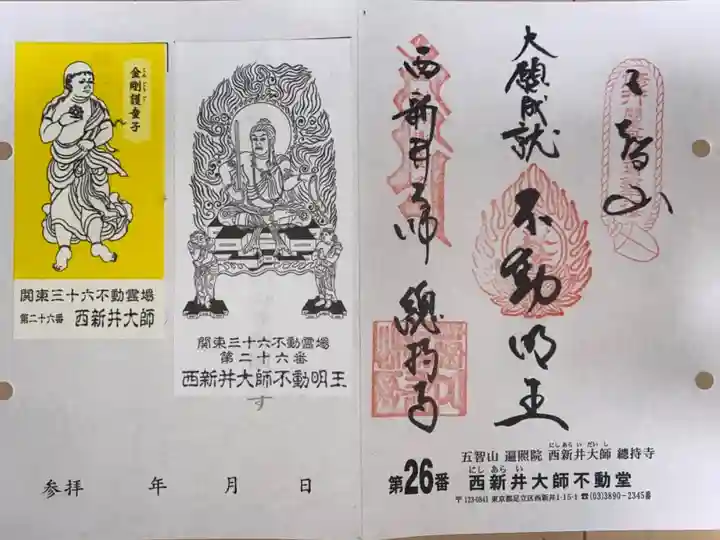 金剛護童子
こんごうごどうじ
関東三十六不動霊場
第二十六番 西新井大師
関東三十六不動霊場
第二十六番
西新井大師不動明王
す
参拝 年 月 日
五智山
大願成就
不動明王
西新井大師
總持寺
五智山 遍照院 西新井大師 總持寺
にしあらいだいし
第26番 西新井大師不動堂
にしあらい
〒123-0841 東京都足立区西新井1-15-1 ☎(03)3890-2345番